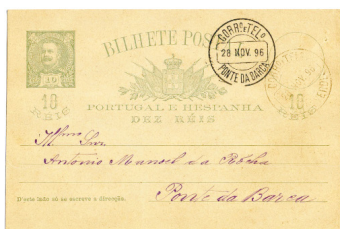 BILHETE POS
CORRO E TELO
28 NOV. 96
PONTE DA BARCA
10
10
REIS
10
REIS
PORTUGAL E HESPANHA
DEZ RÉIS
Illmo Snr
Antonio Manoel da Rocha
Ponte da Barca
D'este lado só se escreve a direcção.